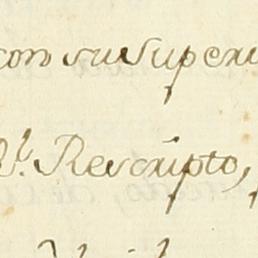 con su Superi
l. Rescripto,